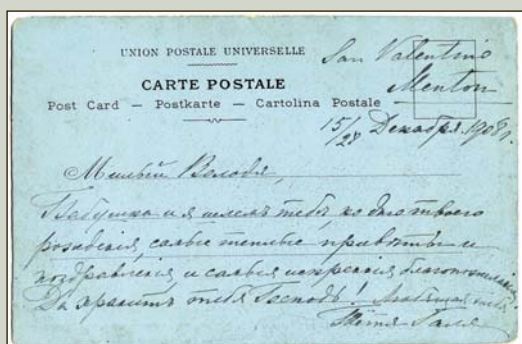 UNION POSTALE UNIVERSELLE
CARTE POSTALE
Post Card — Postkarte — Cartolina Postale
San Valentino
Menton
15/28 Декабря 1908 г.
Милый Володя,
Бабушка и я шлемъ тебѣ, ко дню твоего
рожденія, самые теплые привѣты и
поздравленія, и самыя искреннія благопожеланія.
Да хранитъ тебя Господь! Любящая тебя
Тетя Галя